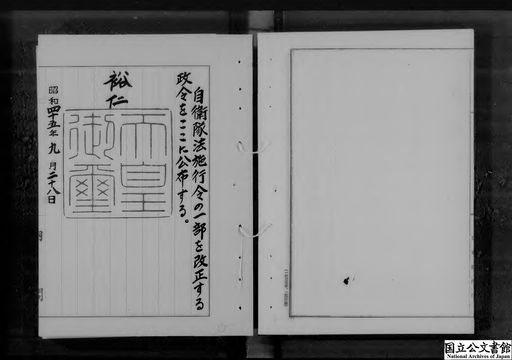 自衛隊法施行令の一部を改正する
政令をここに公布する。
裕仁
天皇
御璽
昭和四十五年九月二十八日
国立公文書館
National Archives of Japan